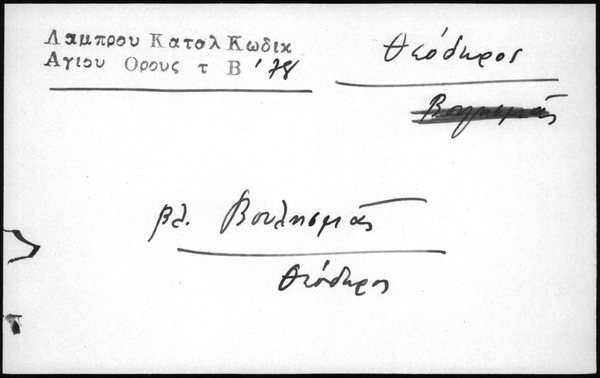 Λαμπρου Κατολ Κωδικ
Αγιου Ορους τ Β' 78
Θεόδωρος
βλ. Βουλησμάς
Θεόδωρος